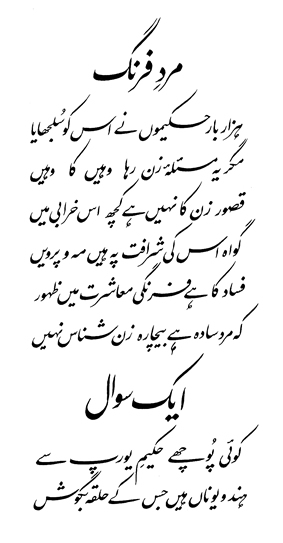 مردِ فرنگ
ہزار بار حکیموں نے اس کو سُلجھایا
مگر یہ مسئلۂ زن رہا وہیں کا وہیں
قصور زن کا نہیں ہے کچھ اس خرابی میں
گواہ اس کی شرافت پہ ہیں مہ و پرویں
فساد کا ہے فرنگی معاشرت میں ظہور
کہ مرد سادہ ہے بیچارہ زن شناس نہیں
ایک سوال
کوئی پُوچھے حکیمِ یورپ سے
ہند و یوناں ہیں جس کے حلقہ بگوش